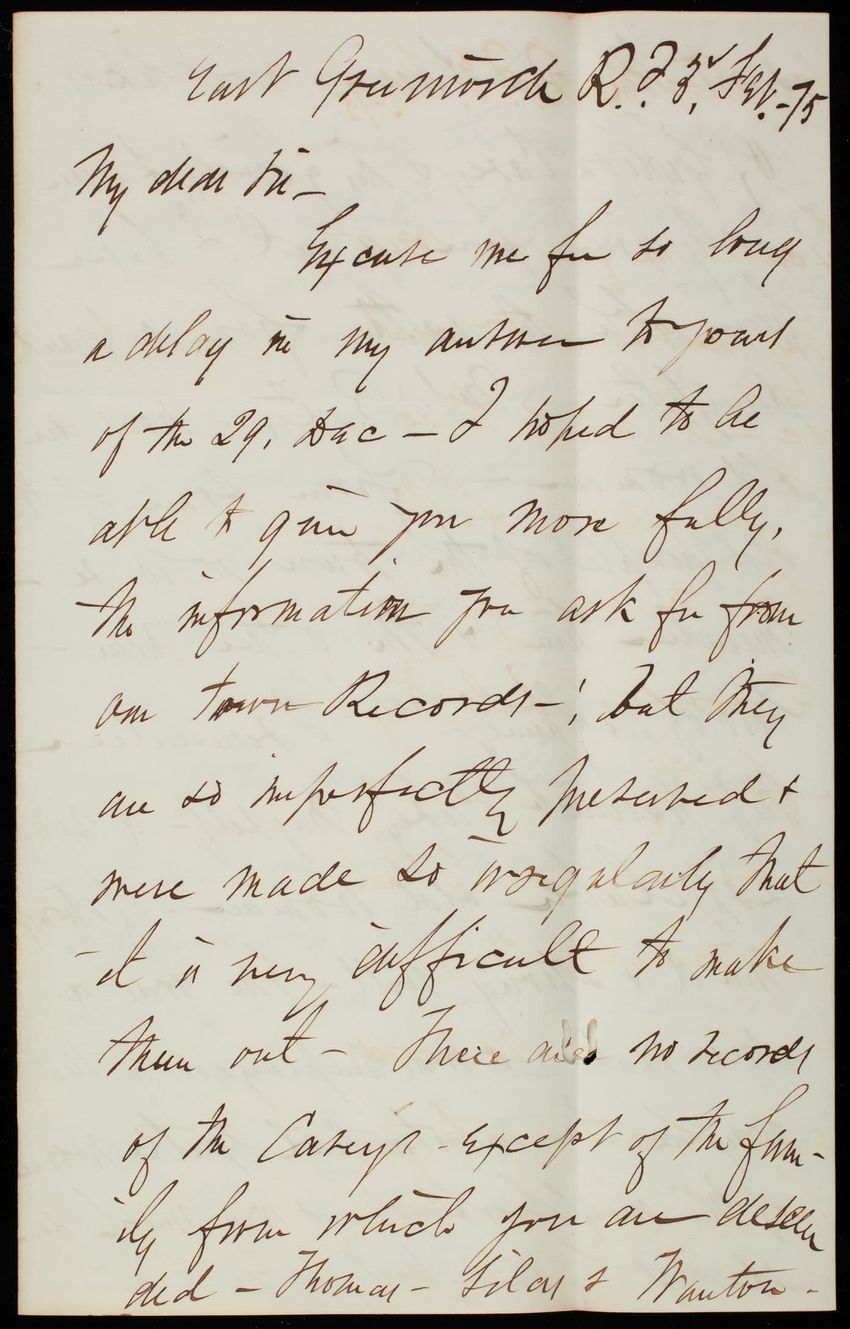 East Greenwich R.I. 3d, Feb. -75
My dear Sir -
Excuse me for so long
a delay in my answer to yours
of the 29, Dec - I hoped to be
able to give you more fully,
the information you ask for from
our town Records - ; but they
are so imperfectly preserved &
were made so irregularly that
it is very difficult to make
them out - There are no records
of the Caseys - except of the fam-
ily from which you are descen
ded - Thomas - Silas & Wanton -